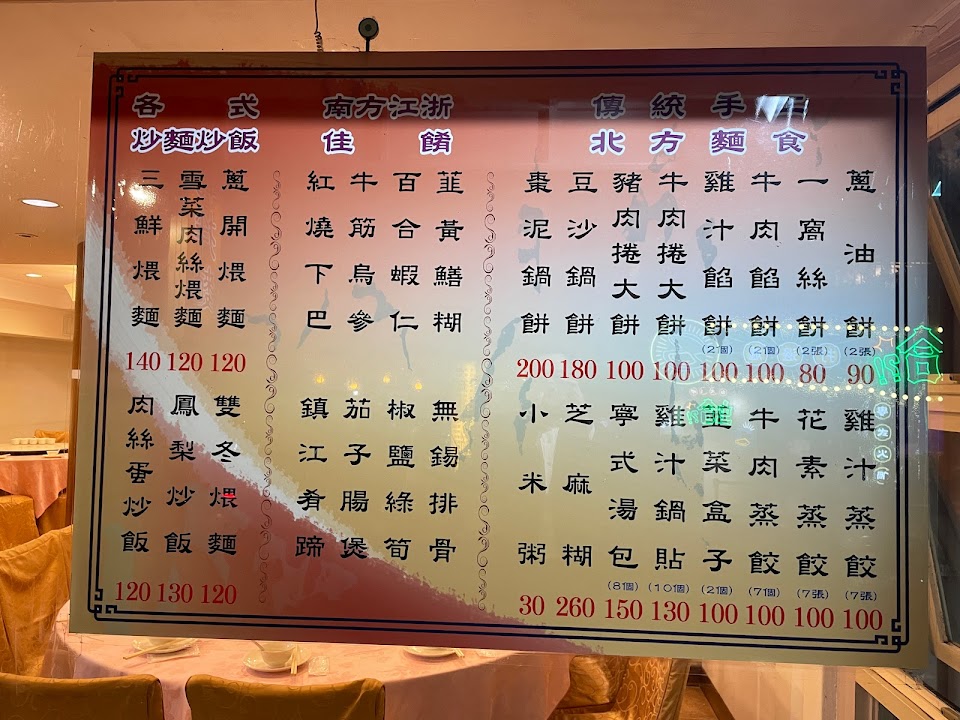 傳統手工
北方麵食
蔥油餅
(2張)
90
一窩絲餅
(2張)
80
牛肉餡餅
(2個)
100
雞汁餡餅
(2個)
100
牛肉捲大餅
100
豬肉捲大餅
100
豆沙鍋餅
180
棗泥鍋餅
200
雞汁蒸餃
(7張)
100
花素蒸餃
(7張)
100
牛肉蒸餃
(7個)
100
韮菜盒子
(2個)
100
雞汁鍋貼
(10個)
130
寧式湯包
(8個)
150
芝麻糊
260
小米粥
30
南方江浙
佳餚
韮黃鱔糊
百合蝦仁
牛筋烏參
紅燒下巴
無錫排骨
椒鹽綠筍
茄子腸煲
鎮江肴蹄
各式
炒麵炒飯
蔥開煨麵
120
雪菜肉絲煨麵
120
三鮮煨麵
140
雙冬煨麵
120
鳳梨炒飯
130
肉絲蛋炒飯
120